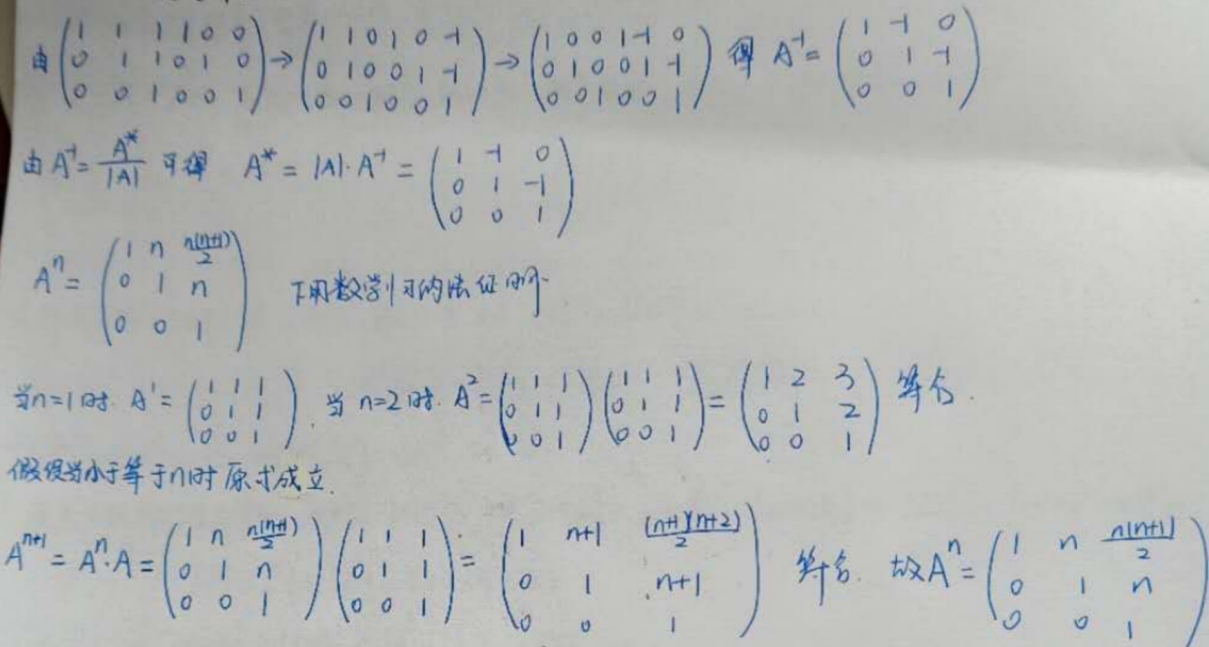 由 (1 1 1 1 0 0; 0 1 1 0 1 0; 0 0 1 0 0 1) → (1 1 0 1 0 -1; 0 1 0 0 1 -1; 0 0 1 0 0 1) → (1 0 0 1 -1 0; 0 1 0 0 1 -1; 0 0 1 0 0 1) 得 A⁻¹ = (1 -1 0; 0 1 -1; 0 0 1)
由 A⁻¹ = A*/|A| 可得 A* = |A|·A⁻¹ = (1 -1 0; 0 1 -1; 0 0 1)
Aⁿ = (1 n n(n+1)/2; 0 1 n; 0 0 1) 下用数学归纳法证明
当n=1时. A¹ = (1 1 1; 0 1 1; 0 0 1). 当 n=2时. A² = (1 1 1; 0 1 1; 0 0 1)(1 1 1; 0 1 1; 0 0 1) = (1 2 3; 0 1 2; 0 0 1) 符合.
假设当小于等于n时 原式成立.
Aⁿ⁺¹ = Aⁿ·A = (1 n n(n+1)/2; 0 1 n; 0 0 1)(1 1 1; 0 1 1; 0 0 1) = (1 n+1 (n+1)(n+2)/2; 0 1 n+1; 0 0 1) 符合. 故Aⁿ = (1 n n(n+1)/2; 0 1 n; 0 0 1)